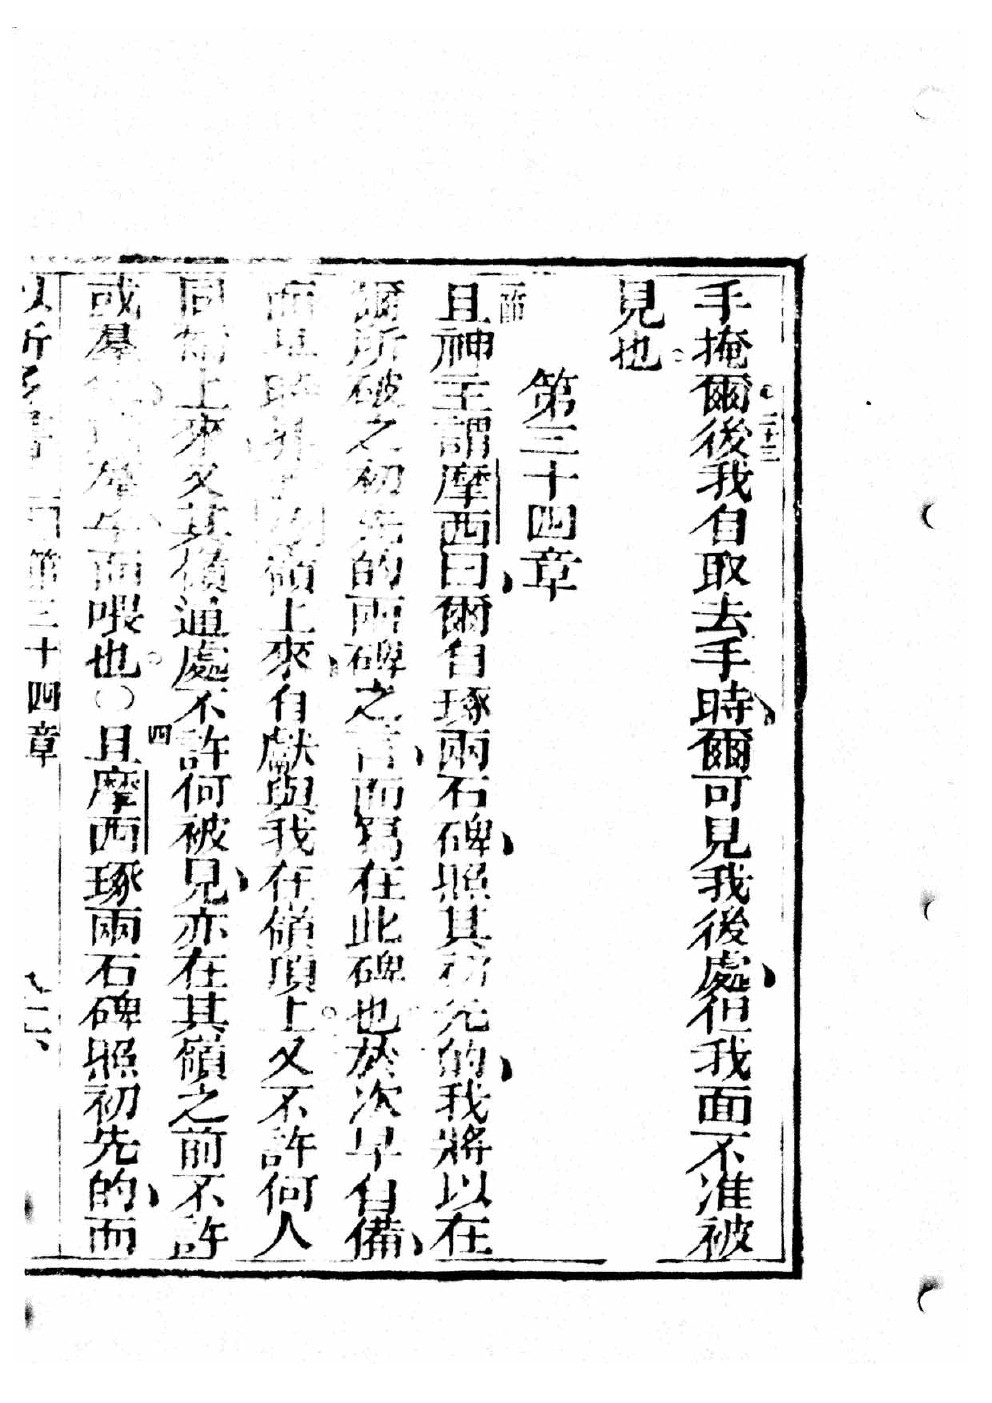 手掩爾後我自取去手時爾可見我後處但我面不准被
二十三
見也。
第三十四章
且神主謂摩西曰爾自琢兩石碑照其初先的我將以在
爾所破之初先的兩碑之言而寫在此碑也。於次早自備
而早時 嶺上來自獻與我在嶺頂上。又不許何人
同爾上來又其嶺通處不許何被見亦在其嶺之前不許
或羣 羣牛而喂也。〇且摩西琢兩石碑照初先的而
四
第三十四章